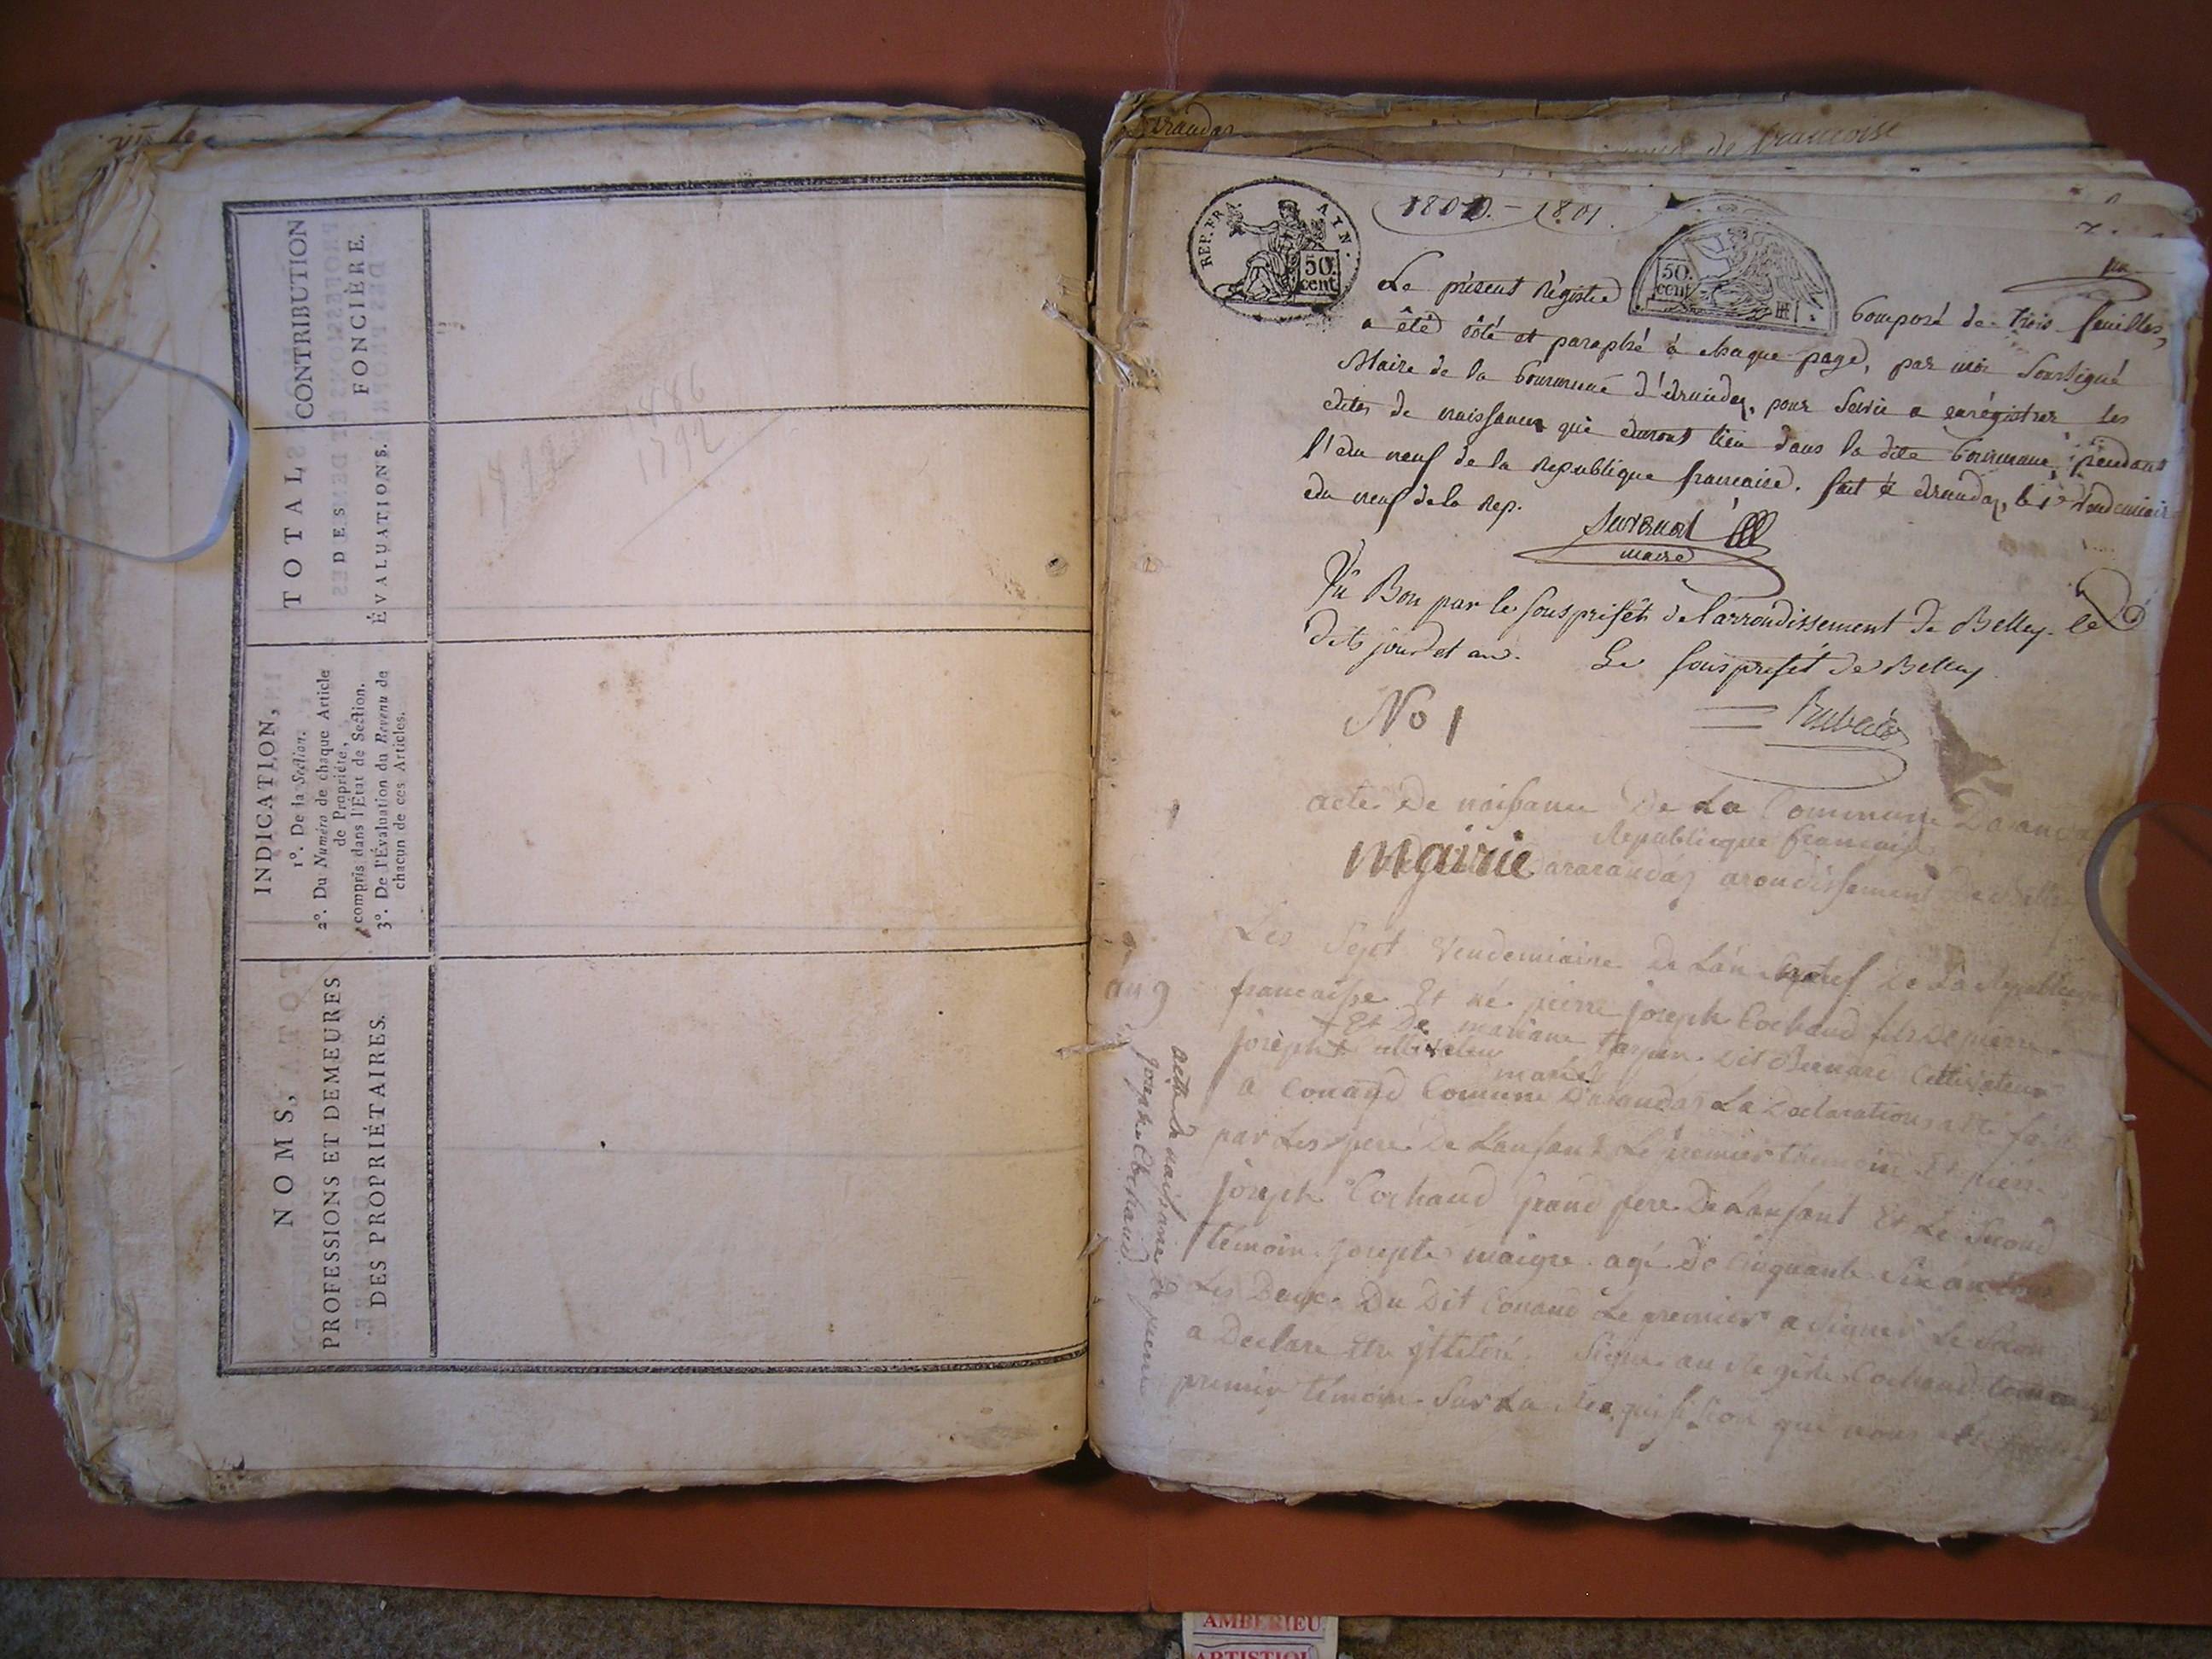 NOMS,
PROFESSIONS ET DEMEURES
DES PROPRIÉTAIRES.
INDICATION,
1°. De la Section.
2°. Du Numéro de chaque Article
de Propriété,
compris dans l'État de Section.
3°. De l'Évaluation du Revenu de
chacun de ces Articles.
TOTAL
DES
ÉVALUATIONS.
CONTRIBUTION
FONCIÈRE.
1792
de francoise
REP. FRA. AIN.
50.
cent.
1800.-1801.
50.
cent.
Le présent Régistre Composé de trois feuilles,
a été côté et paraphé à chaque page, par moi Soussigné
Maire de la Commune d'Arandas, pour Servir a enrégistrer les
Actes de naissances qui auront lieu dans la dite Commune, pendant
l'An neuf de la République francaise. fait à Arandas, le 1er Vendemiaire
An neuf de la Rep.
maire
Vû Bon par le Sousprefêt de l'arrondissement de Belley. le
dits jour et an. Le Sousprefét de Belley
No 1
acte De naissance De La Commune
Republicque francaise
mairie arondissement
an 9
acte De naissance De pierre
joseph Cochaud
Les Sept Vendemiaire De Lan neuf De La Republique
francaisse Et né pierre joseph Cochaud fils De pierre
joseph Et De mariane Dit Bernard Cultivateur
marié
a Conand Comune Darandas La Declaration a été faite
par Les pere De Lanfant Le premier temoin Et pierre
joseph Cochaud grand pere De Lanfant Et Le Second
temoin joseph maigre agé De cinquante Six an tous
Les Deux Du Dit Conand Le premier a signer Le Secon
a Declare Etre Signé au Registre Cochaud
premier témoin Sur La Requisition que nous
AMBERIEU